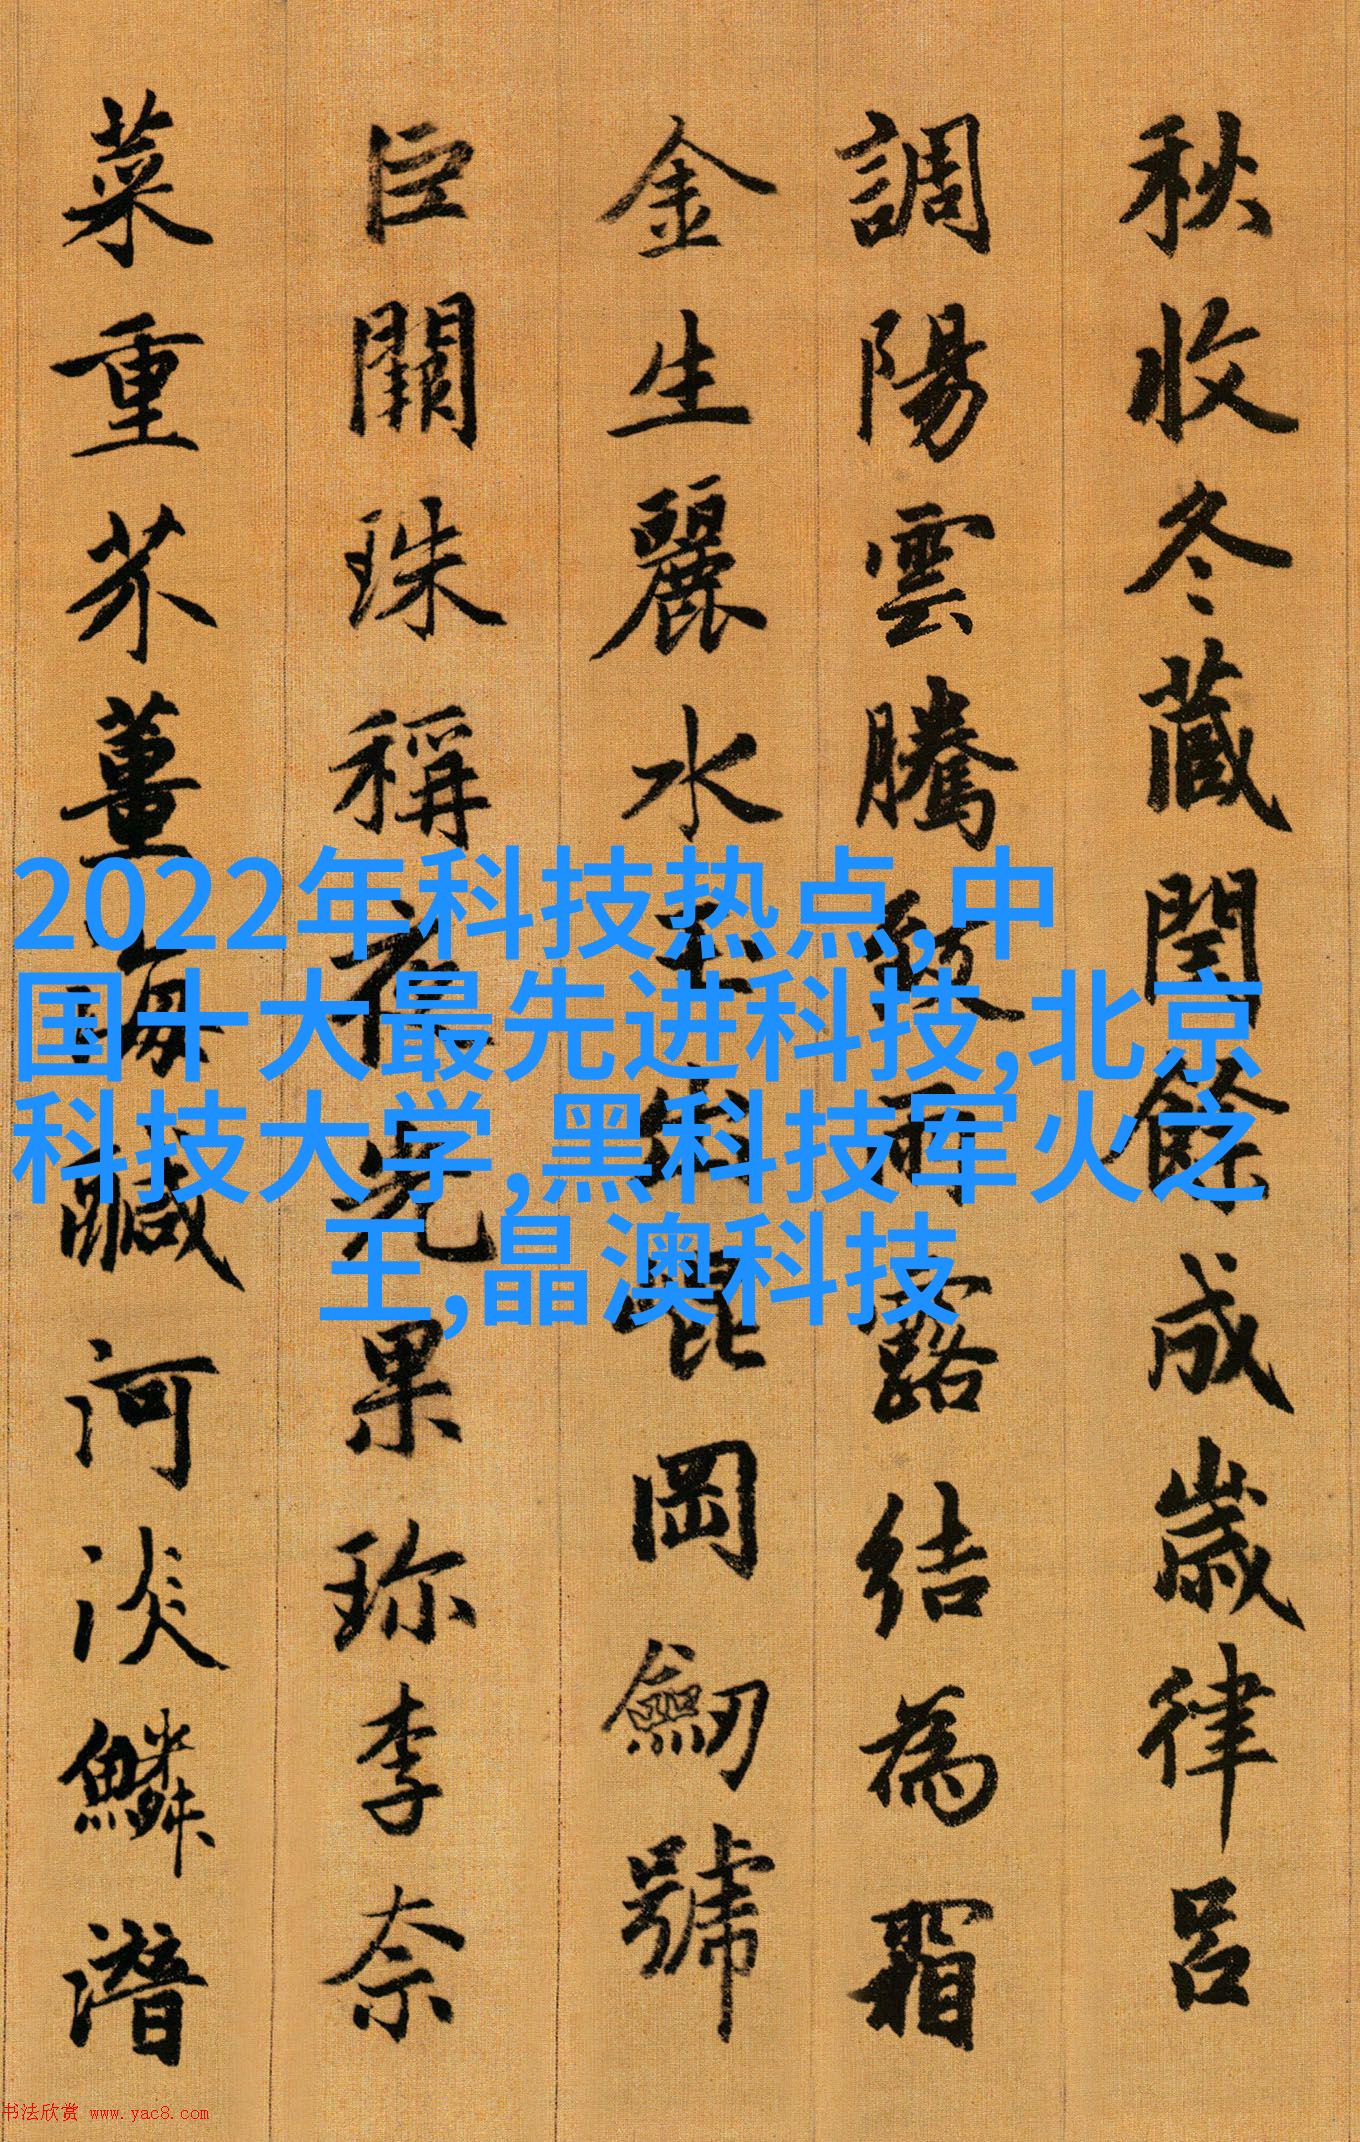 秋收冬藏閏餘成歲律呂
調陽雲騰致雨露結為霜
金生麗水玉出崑岡劔號
巨闕珠稱夜光果珎李奈
菜重芥薑海鹹河淡鱗潛
2022年科技热点,中
国十大最先进科技,北京
科技大学,黑科技军火之
王,晶澳科技
书法欣赏 www.yac8.com